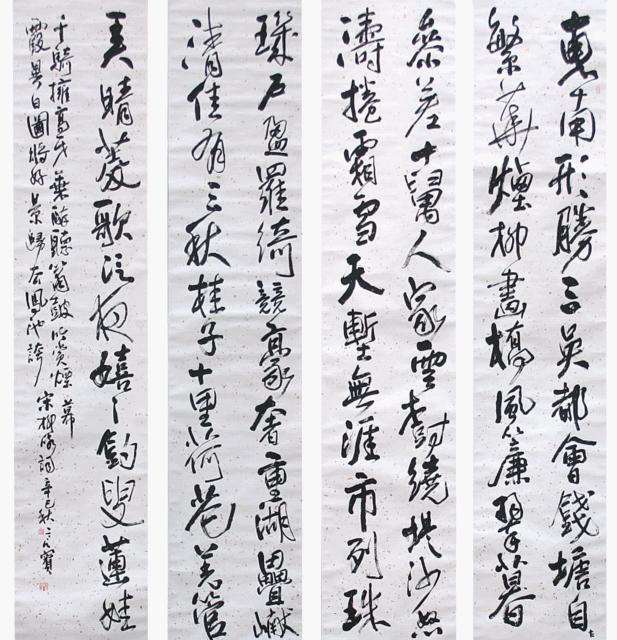 東南形勝三吳都會錢塘自
繁華煙柳畫橋風簾翠暮
參差十萬人家雲樹繞堤沙怒
濤捲霜雪天塹無涯市列珠
璣戶盈羅綺競豪奢重湖疊巘
清佳有三秋桂子十里荷花羌管
弄晴菱歌泛夜嬉〻釣叟蓮娃
千騎擁高牙乘醉聽簫鼓吟賞煙 幕
霞異日圖將好景歸去鳳池誇 宋柳永詞 辛巳秋 寶